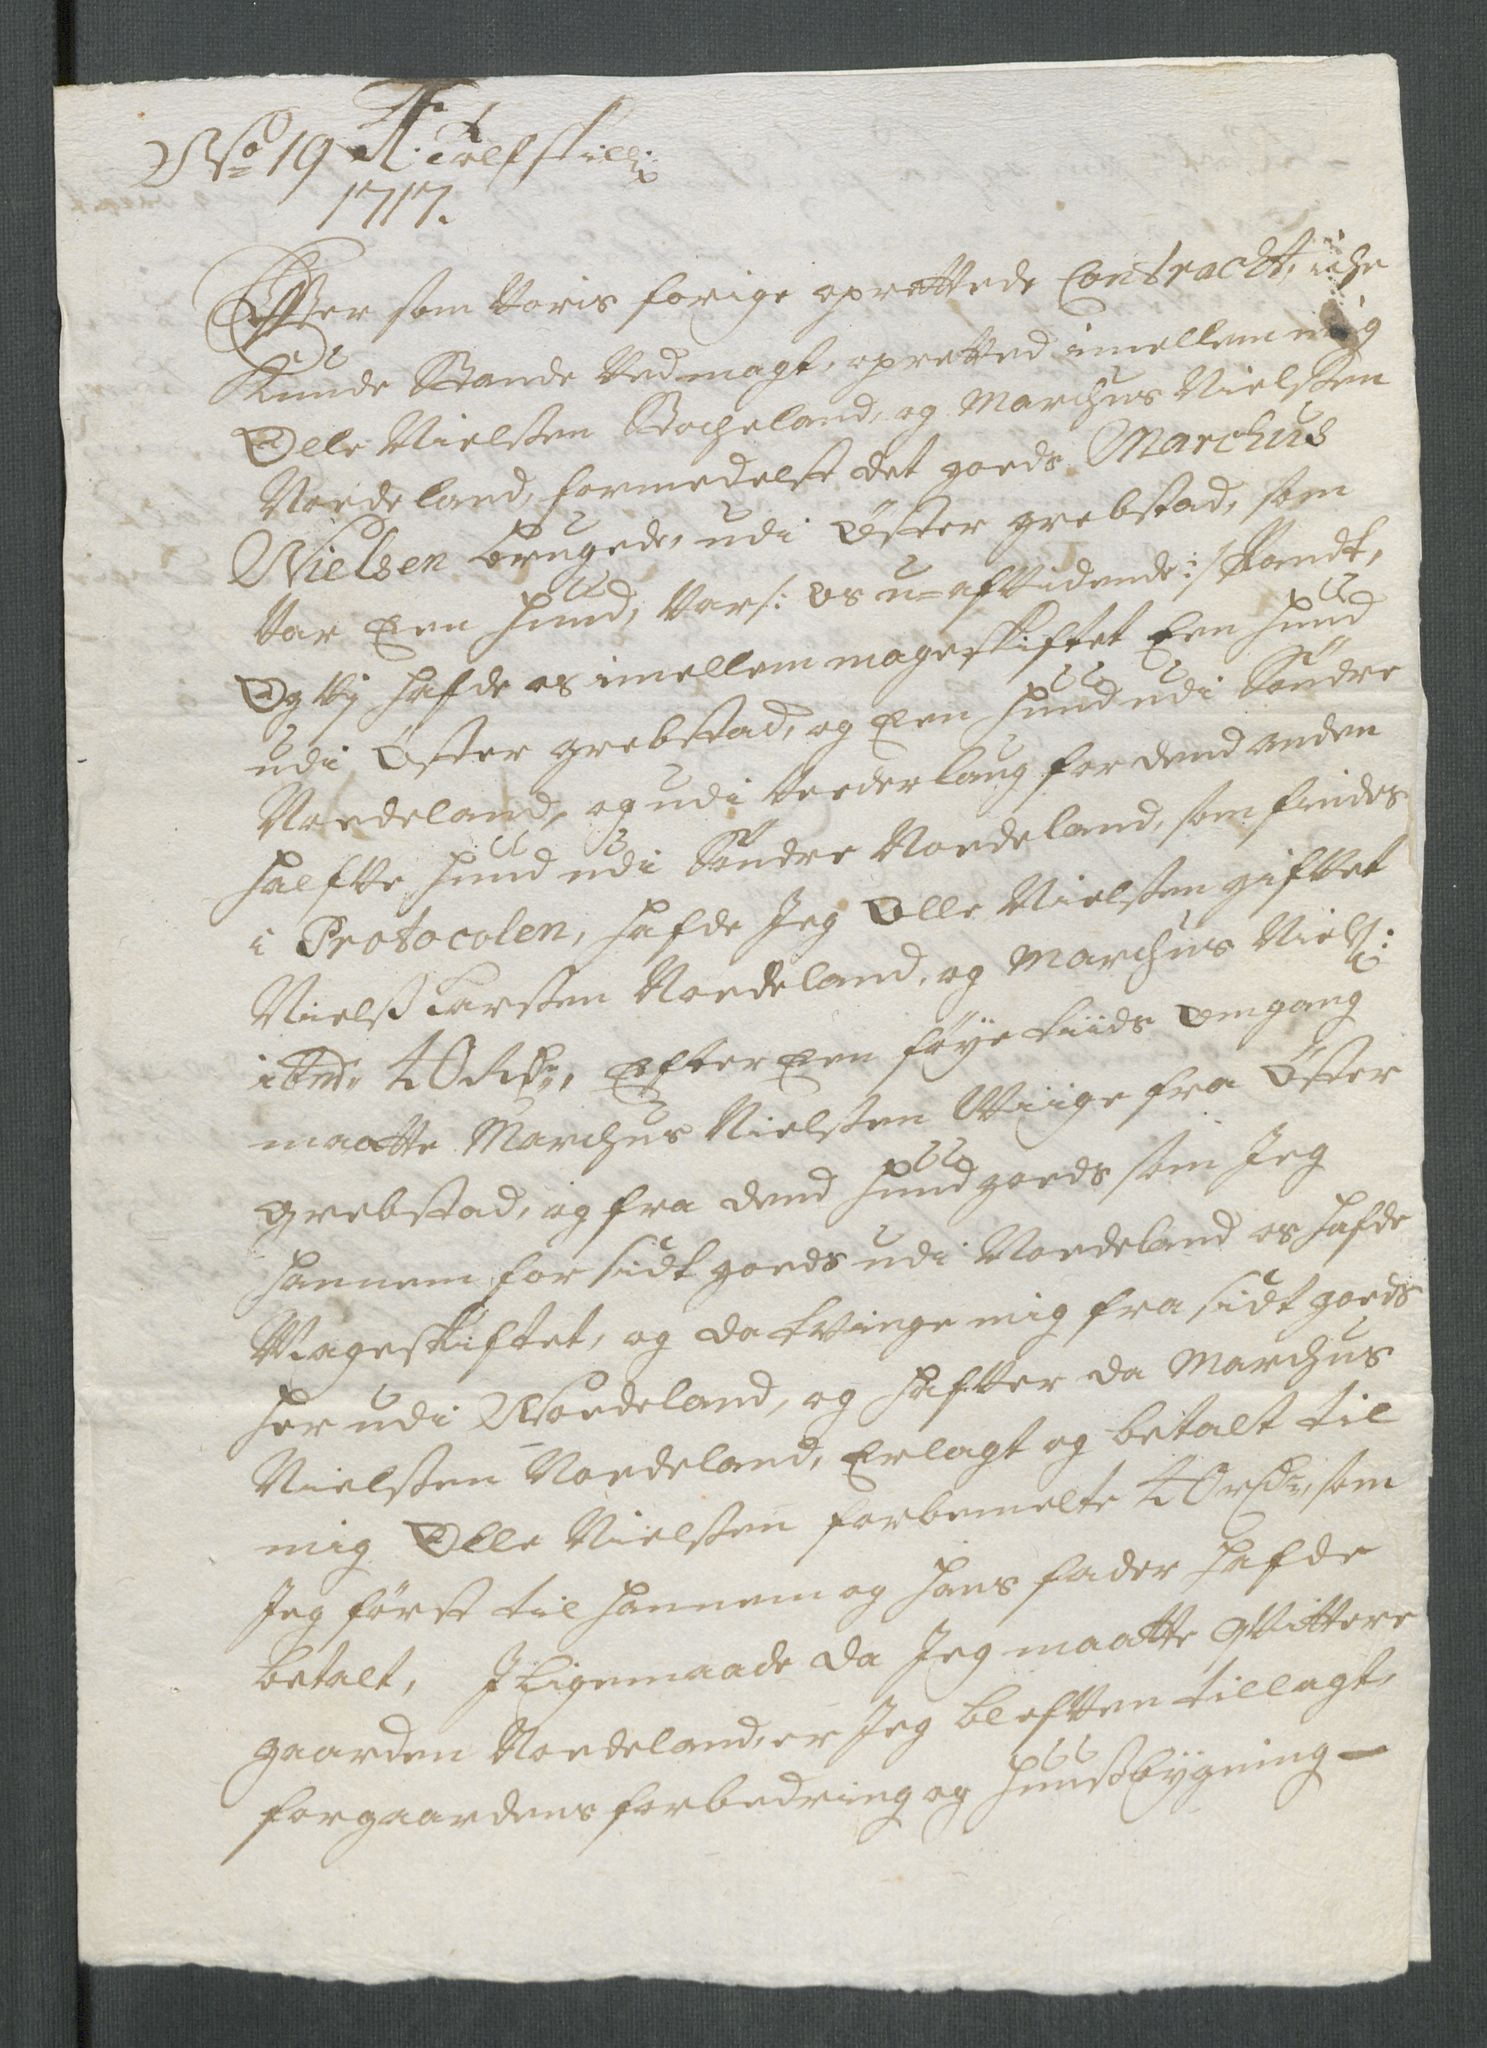 No 19 Tolf skill:
1717.
Efter som Voris forige oprettede Contracht, iche
Kunde Stande Ved magt, opretted imellem mig
Olle Nielsen Stocheland, og Marchus Nielsen
Nordeland, formedelst det goeds Marchus
Nielsen brugede, udi Øster grebstad, som
Var Een Huud, Var /: os u=afvidende :/ Pandt,
Og Vj hafde os imellem mageskiftet Een huud
udi Øster grebstad, og Een huud udi Søndre
Nordeland, og udi Vederlaug for dend anden
halfve huud udi Søndre Nordeland, som findes
i Protocolen, hafde Jeg Olle Nielsen giftvet
Niels Larsen Nordeland, og Marchus Niels:
ibid: 40 Rdr, Efter Een føye tiids Omgang
maatte Marchus Nielsen Wiige fra Øster
grebstad, og fra dend huud goeds som Jeg
hannem for sidt goeds udi Nordeland os hafde
Mageskiftet, og da tvinge mig fra sidt goeds
her udi Nordeland, og hafver da Marchus
Nielsen Nordeland, Erlagt og betalt til
mig Olle Nielsen forbemelte 40 rdr, som
Jeg først til hannem og hans fader hafde
betalt, J Ligemaade da Jeg maatte qvittere
gaarden Nordeland, er Jeg blefven tillagt,
for gaardens forbedring og huusbygning —